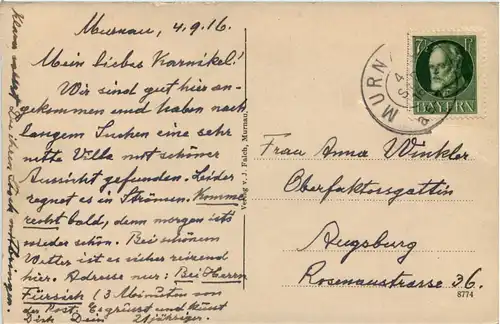 Murnau, 4.9.16.
Mein liebes Karnikel!
Wir sind gut hier an-
gekommen und haben nach
langem Suchen eine sehr
nette Villa mit schöner
Aussicht gefunden. Leider
regnet es in Strömen. Komme
recht bald, denn morgen ists
wieder schön. Bei schönem
Wetter ist es sicher reizend
hier. Adresse nur: Bei Herrn
Fürsich (3 Minuten von
der Post. Es grüsst und küsst
Dich Dein 21jähriger.
Du ihren Rock mitbringen.
Verlag v. J. Falch, Murnau.
7½ P
BAYERN
MURN
4
Frau Anna Winkler
Oberfaktorsgattin
Augsburg
Rosenaustrasse 36.
8774